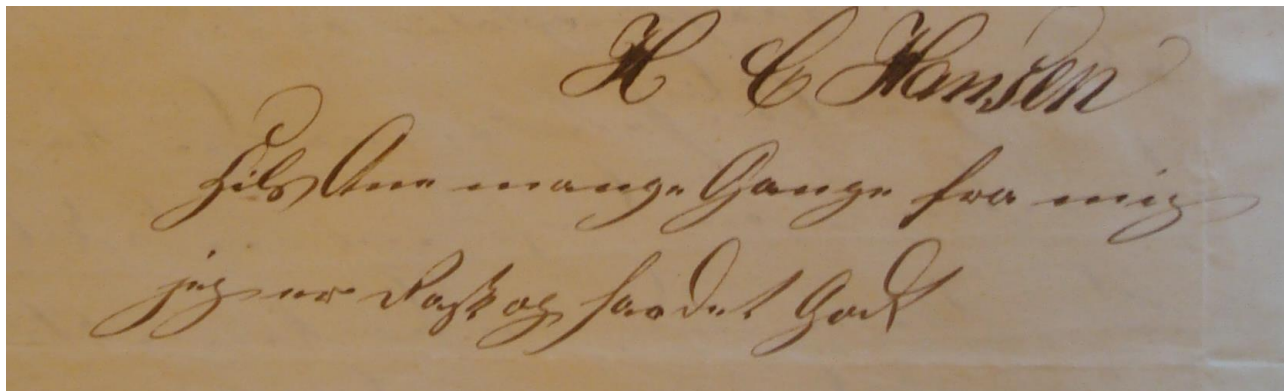 H C Hansen
Hils Ane mange Gange fra mig
jeg er Rask og har det God